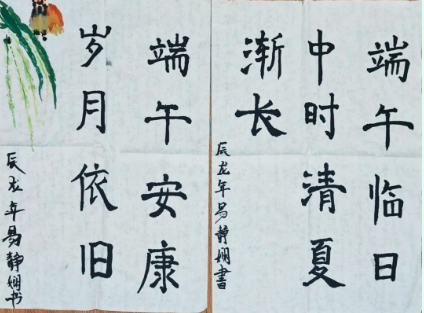 端午临日
中时清夏
渐长
辰龙年易静娴書
端午安康
岁月依旧
辰龙年易静娴书